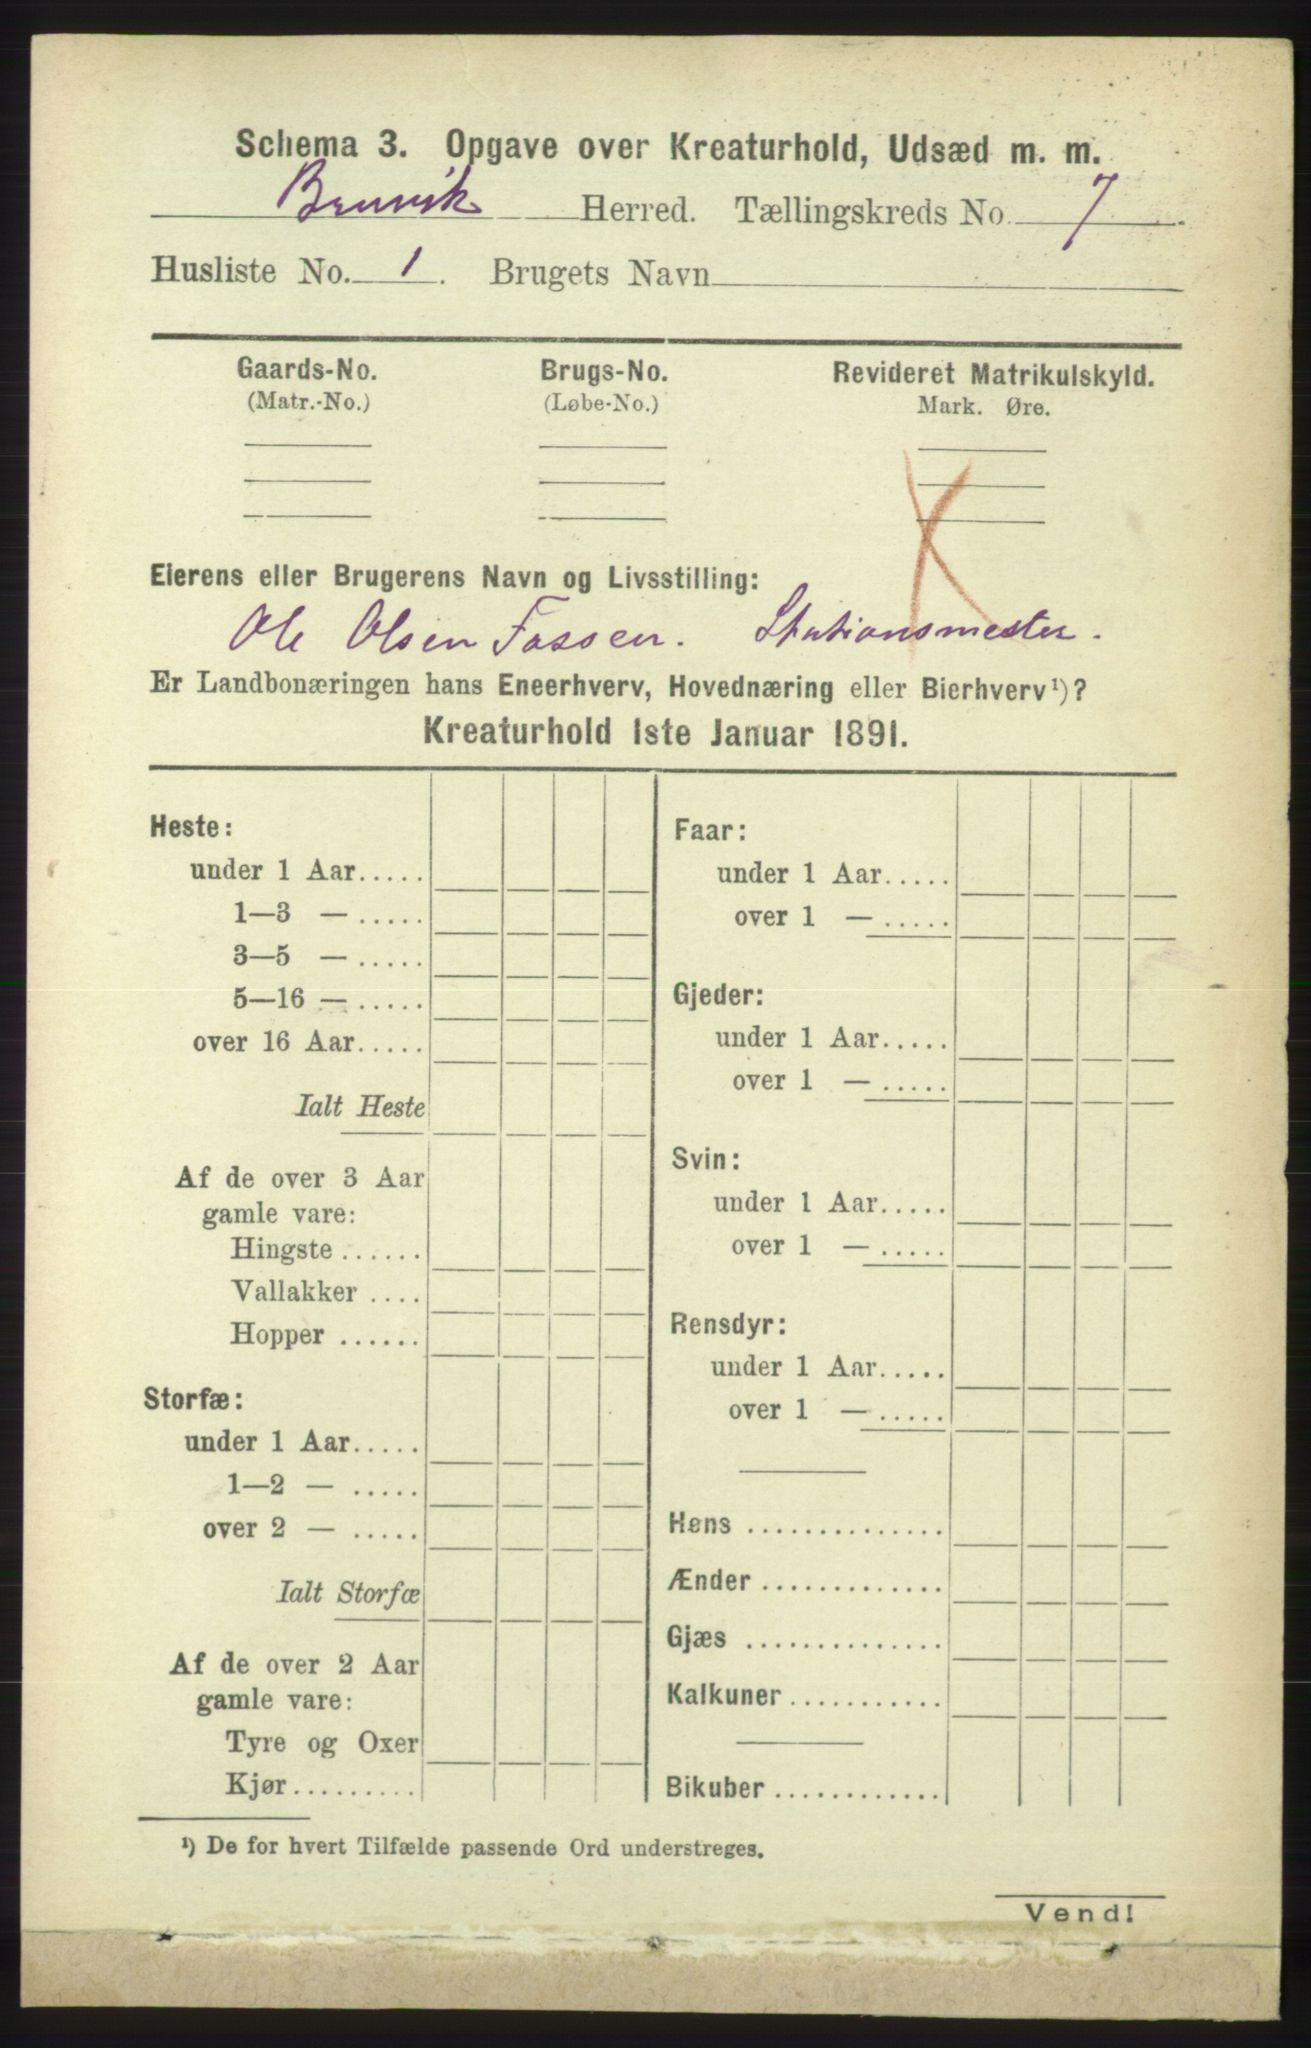 Schema 3. Opgave over Kreaturhold, Udsæd m. m.
Bruvik Herred. Tællingskreds No. 7
Husliste No. 1. Brugets Navn
Gaards-No. Brugs-No. Revideret Matrikulskyld.
(Matr.-No.) (Løbe-No.) Mark. Øre.
Eierens eller Brugerens Navn og Livsstilling:
Ole Olsen Fossen. Stationsmester.
Er Landbonæringen hans Eneerhverv, Hovednæring eller Bierhverv¹)?
Kreaturhold 1ste Januar 1891.
Heste:
under 1 Aar.....
1—3 — .....
3—5 — .....
5—16 — .....
over 16 Aar.....
Ialt Heste
Af de over 3 Aar
gamle vare:
Hingste ......
Vallakker ....
Hopper ......
Storfæ:
under 1 Aar.....
1—2 — .....
over 2 — .....
Ialt Storfæ
Af de over 2 Aar
gamle vare:
Tyre og Oxer
Kjør.........
Faar:
under 1 Aar.....
over 1 — .....
Gjeder:
under 1 Aar.....
over 1 — .....
Svin:
under 1 Aar.....
over 1 — .....
Rensdyr:
under 1 Aar.....
over 1 — .....
Høns ..............
Ænder .............
Gjæs ..............
Kalkuner...........
Bikuber ............
¹) De for hvert Tilfælde passende Ord understreges.
Vend!